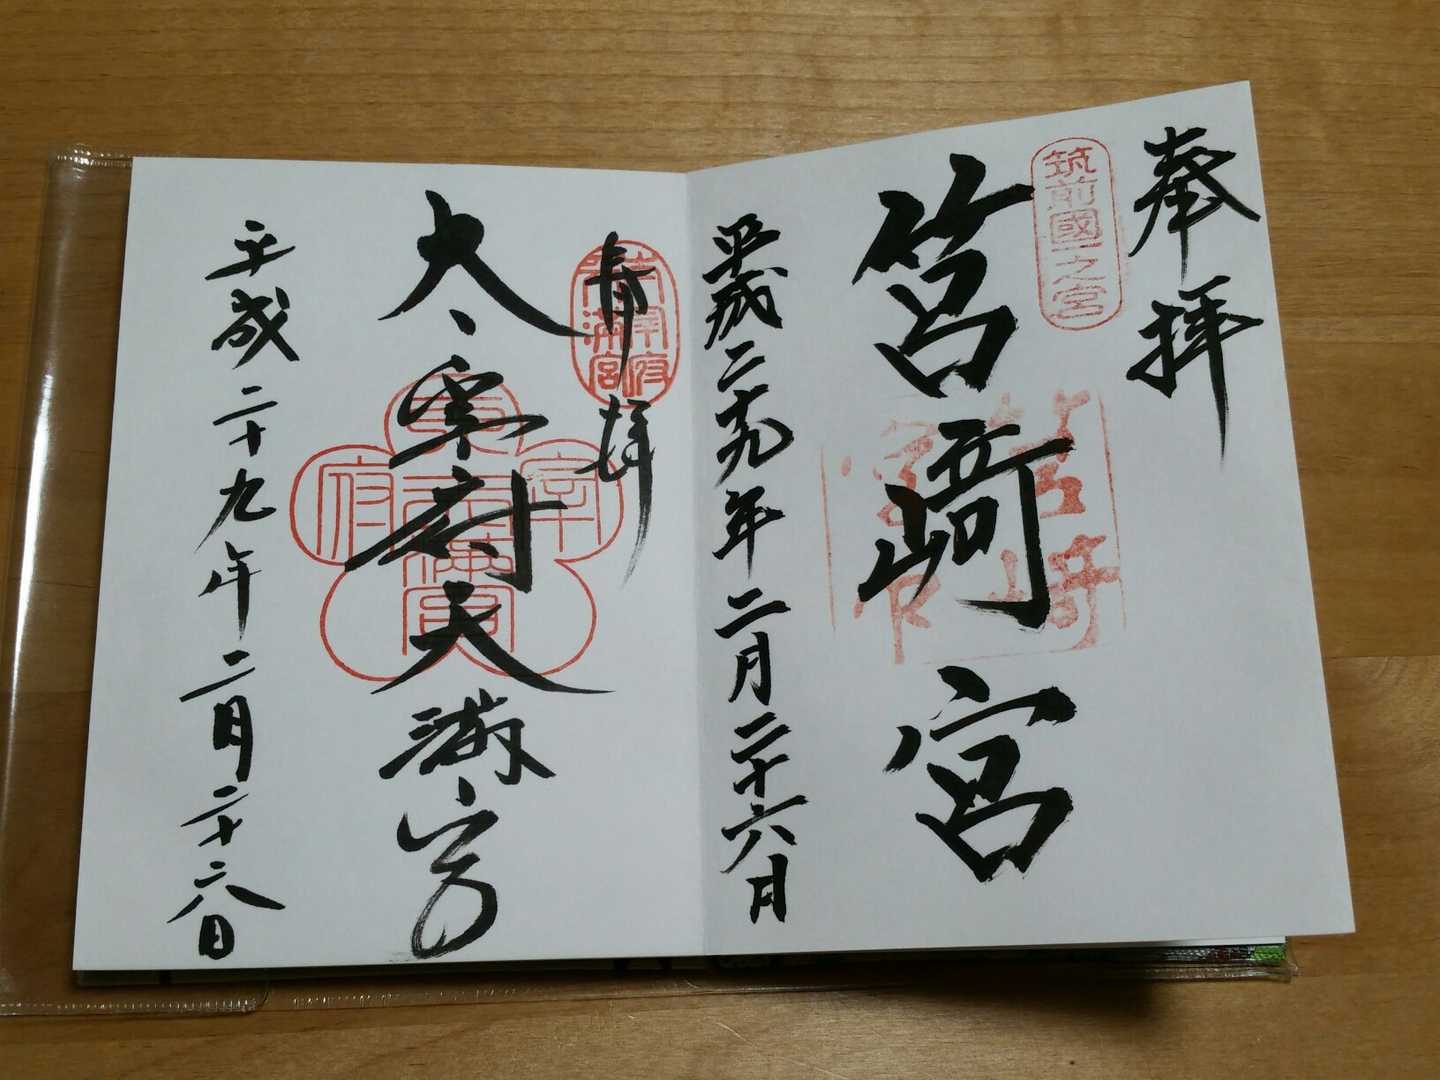 奉拝
筑前國一之宮
筥崎宮
筥崎宮印
平成二十九年二月二十六日
奉拝
太宰府天満宮
太宰府天満宮
平成二十九年二月二十六日